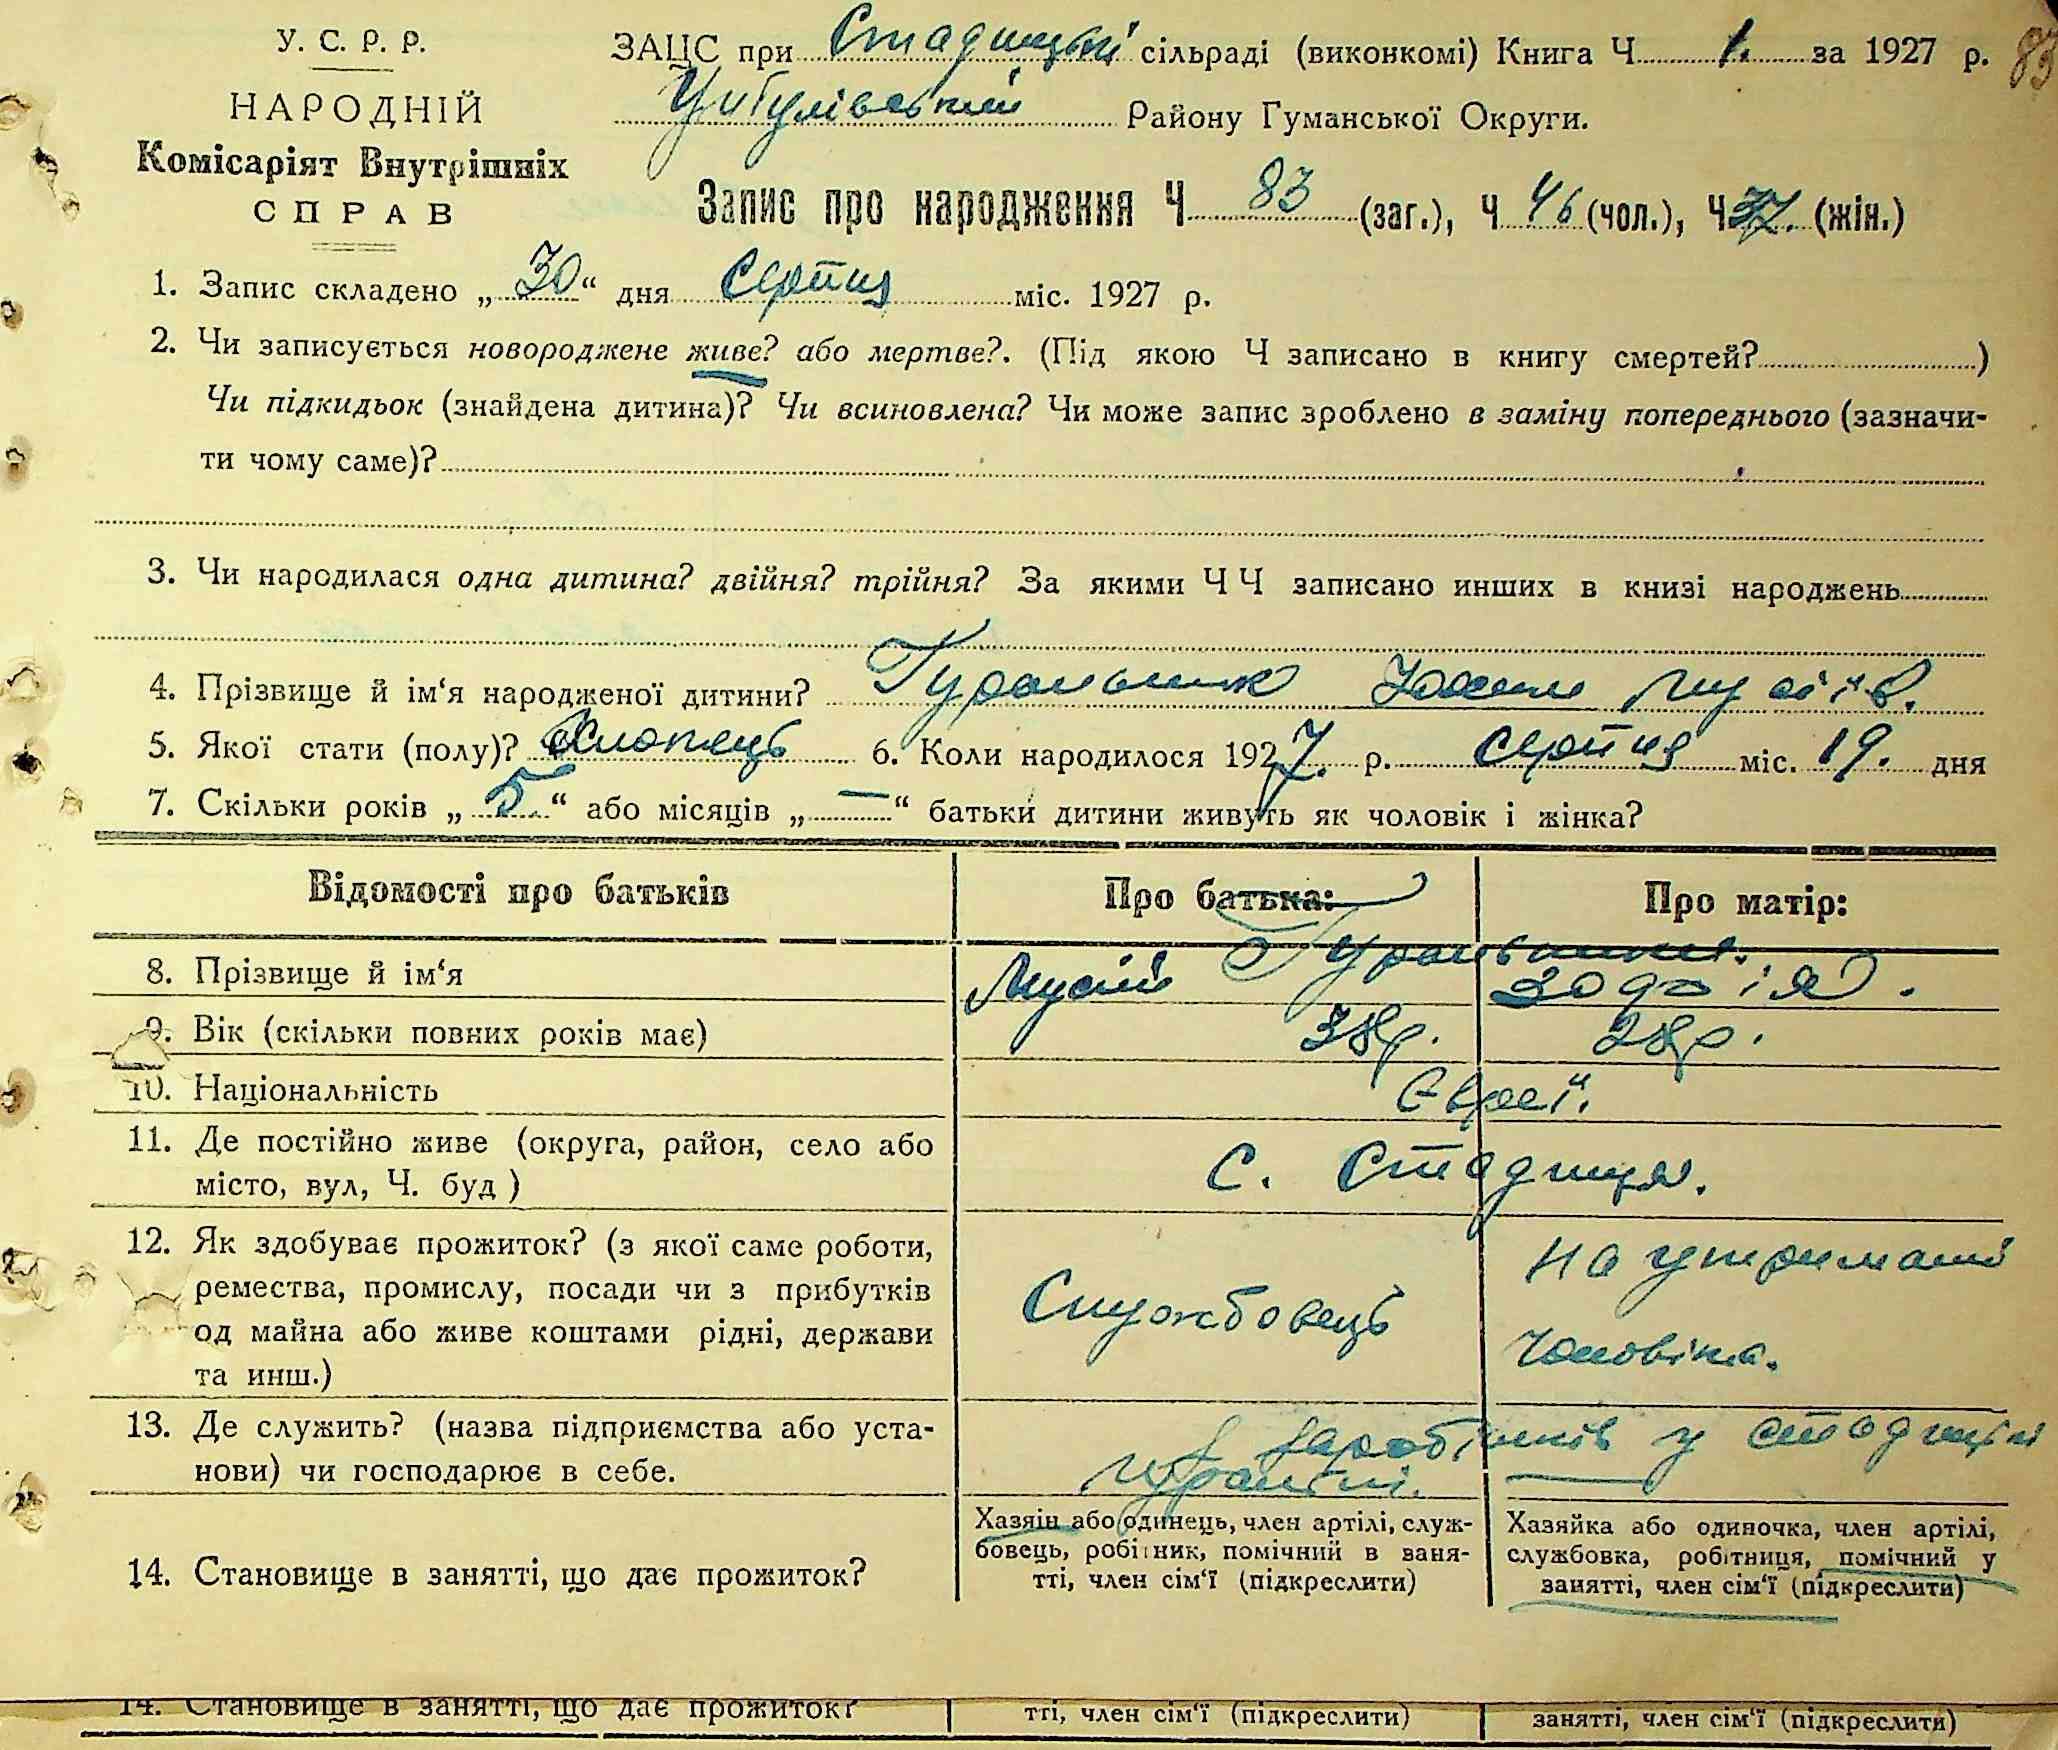 У. С. Р. Р.
НАРОДНІЙ
Комісаріят Внутрішніх
СПРАВ
ЗАЦС при Стадницькі сільраді (виконкомі) Книга Ч 1. за 1927 р. 83
Цибулівський Району Гуманської Округи.
Запис про народження Ч 83 (заг.), Ч 46 (чол.), Ч 37. (жін.)
1. Запис складено „30“ дня серпня міс. 1927 р.
2. Чи записується новороджене живе? або мертве?. (Під якою Ч записано в книгу смертей? )
Чи підкидьок (знайдена дитина)? Чи всиновлена? Чи може запис зроблено в заміну попереднього (зазначи-
ти чому саме)?
3. Чи народилася одна дитина? двійня? трійня? За якими Ч Ч записано инших в книзі народжень
4. Прізвище й ім‘я народженої дитини? Гуральник Мусіїв.
5. Якої стати (полу)? Хлопець 6. Коли народилося 1927. р. серпня міс. 19. дня
7. Скільки років „5.“ або місяців „—“ батьки дитини живуть як чоловік і жінка?
Відомості про батьків Про батька: Про матір:
8. Прізвище й ім‘я Мусій Гуральники.
9. Вік (скільки повних років має) 38р. 28р.
10. Національність Євреї.
11. Де постійно живе (округа, район, село або
місто, вул, Ч. буд ) с. Стадниця.
12. Як здобуває прожиток? (з якої саме роботи,
ремества, промислу, посади чи з прибутків
од майна або живе коштами рідні, держави
та инш.)
Службовець
на утримані
чоловіка.
13. Де служить? (назва підприємства або уста-
нови) чи господарює в себе.
у
14. Становище в занятті, що дає прожиток?
Хазяін або одинець, член артілі, служ-
бовець, робітник, помічний в заня-
тті, член сім‘ї (підкреслити)
Хазяйка або одиночка, член артілі,
службовка, робітниця, помічний у
занятті, член сім‘ї (підкреслити)
14. Становище в занятті, що дає прожиток? тті, член сім‘ї (підкреслити) занятті, член сім‘ї (підкреслити)